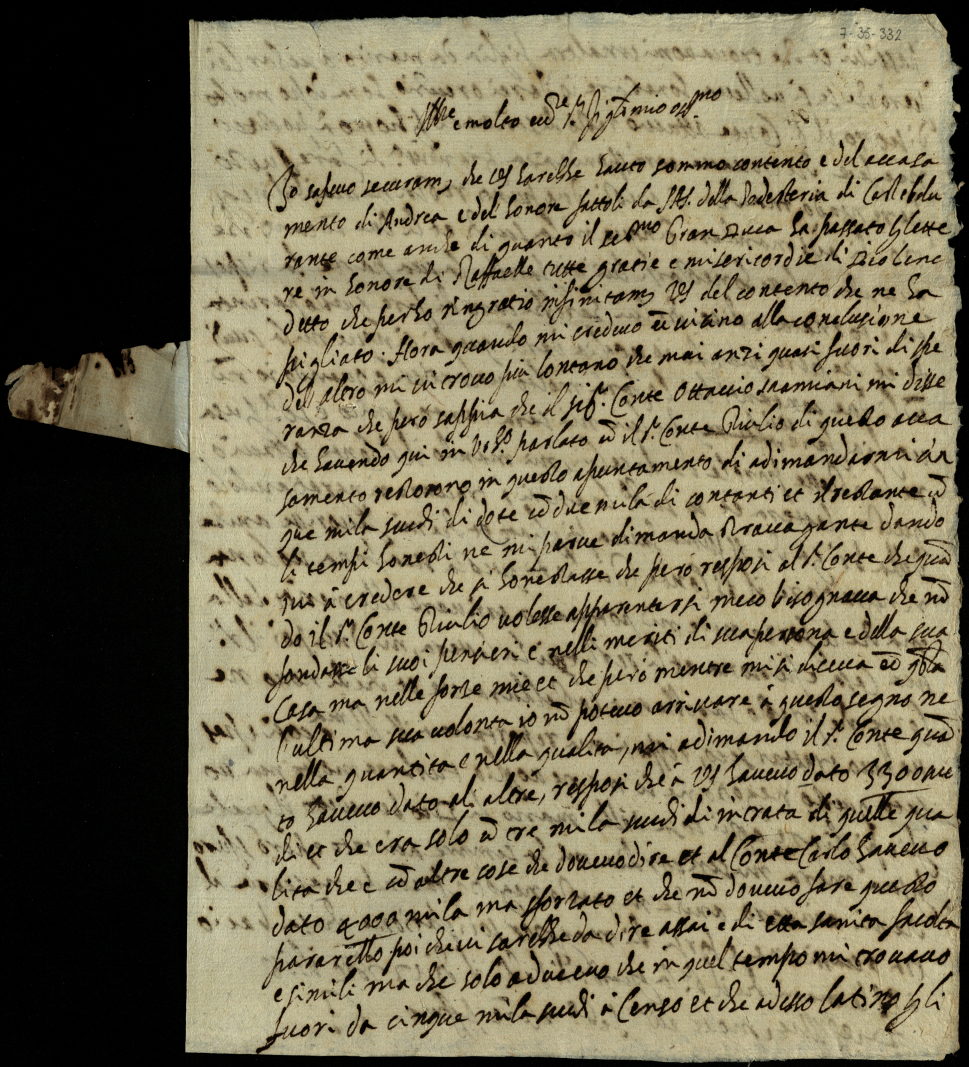 7-35-332
Ill.re e molto ecc.re S.r Figl.mio oss.mo
Io sapevo securam. che VS harebbe hauto sommo contento e del accasa
mento di Andrea e del honore fattoli da SAS. della Podesteria di Castelbolu
rante come anche di quanto il Ser.mo Gran Duca ha passato lette
re in honore di Raffaelle tutte gratie e misericordie di Dio bene
detto che per ho ringratio infinitam. VS del contento che ne ha
pigliato. Hora quando mi credevo vicino alla conclusione
del altro mi ci trovo più lontano che mai anzi quasi fuori di spe
ranza che però sappia che il Sig.r Conte Ottavio mi disse
che havendo qui in parlato cō il S.r Conte Giulio di questo acca
samento restorono in questo apuntamento di adimandarmi cin
que mila scudi di dote cō due mila di contanti et il restante cō
li tempi honesti ne mi parve dimanda stravagante dando
mi à credere che si honestasse che però resposi al S.r Conte che quā
do il S.r Conte Giulio volesse apparentarsi meco bisognava che nō
fondasse li suoi pensieri e nelli meriti di sua persona e della sua
Casa ma nelle forze mie et che però mentre mi si diceva
l'ultima sua volonta io nō potevo arrivare à questo segno ne
nella quantita e nella qualita, mi adimando il S.r Conte quā
to havevo dato al altre, resposi che à VS havevo dato 3300 scu
di et che era solo cō tre mila scudi di intrata di quelle qua
lita che e cō altre cose che dovevo dire et al Conte Carlo havevo
dato 4000 mila ma sforzato et che nō dovevo fare questo
poi che vi sarebbe da dire assai e di etta sanita facolta
e simili ma che solo adducevo che in quel tempo mi trovavo
fuori da cinque mila scudi à Censo et che adesso